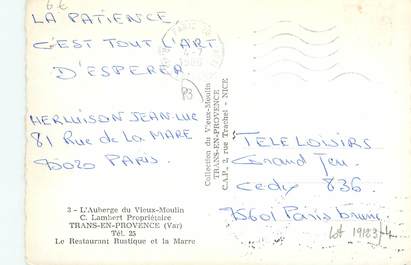 6€
LA PATIENCE,
C'EST TOUT L'ART
D'ESPERER.
P3
HERLUISON JEAN-LUC
81 Rue de la MARE
75020 PARIS.
Collection du Vieux-Moulin
TRANS-EN-PROVENCE
C.A.P. 2, rue Trachel - NICE
TELE LOISIRS
Grand Jeu
Cedex 836.
75601 Paris brune
Lot 19183-4
3 - L'Auberge du Vieux-Moulin
C. Lambert Propriétaire
TRANS-EN-PROVENCE (Var)
Tél. 25
Le Restaurant Rustique et la Marre